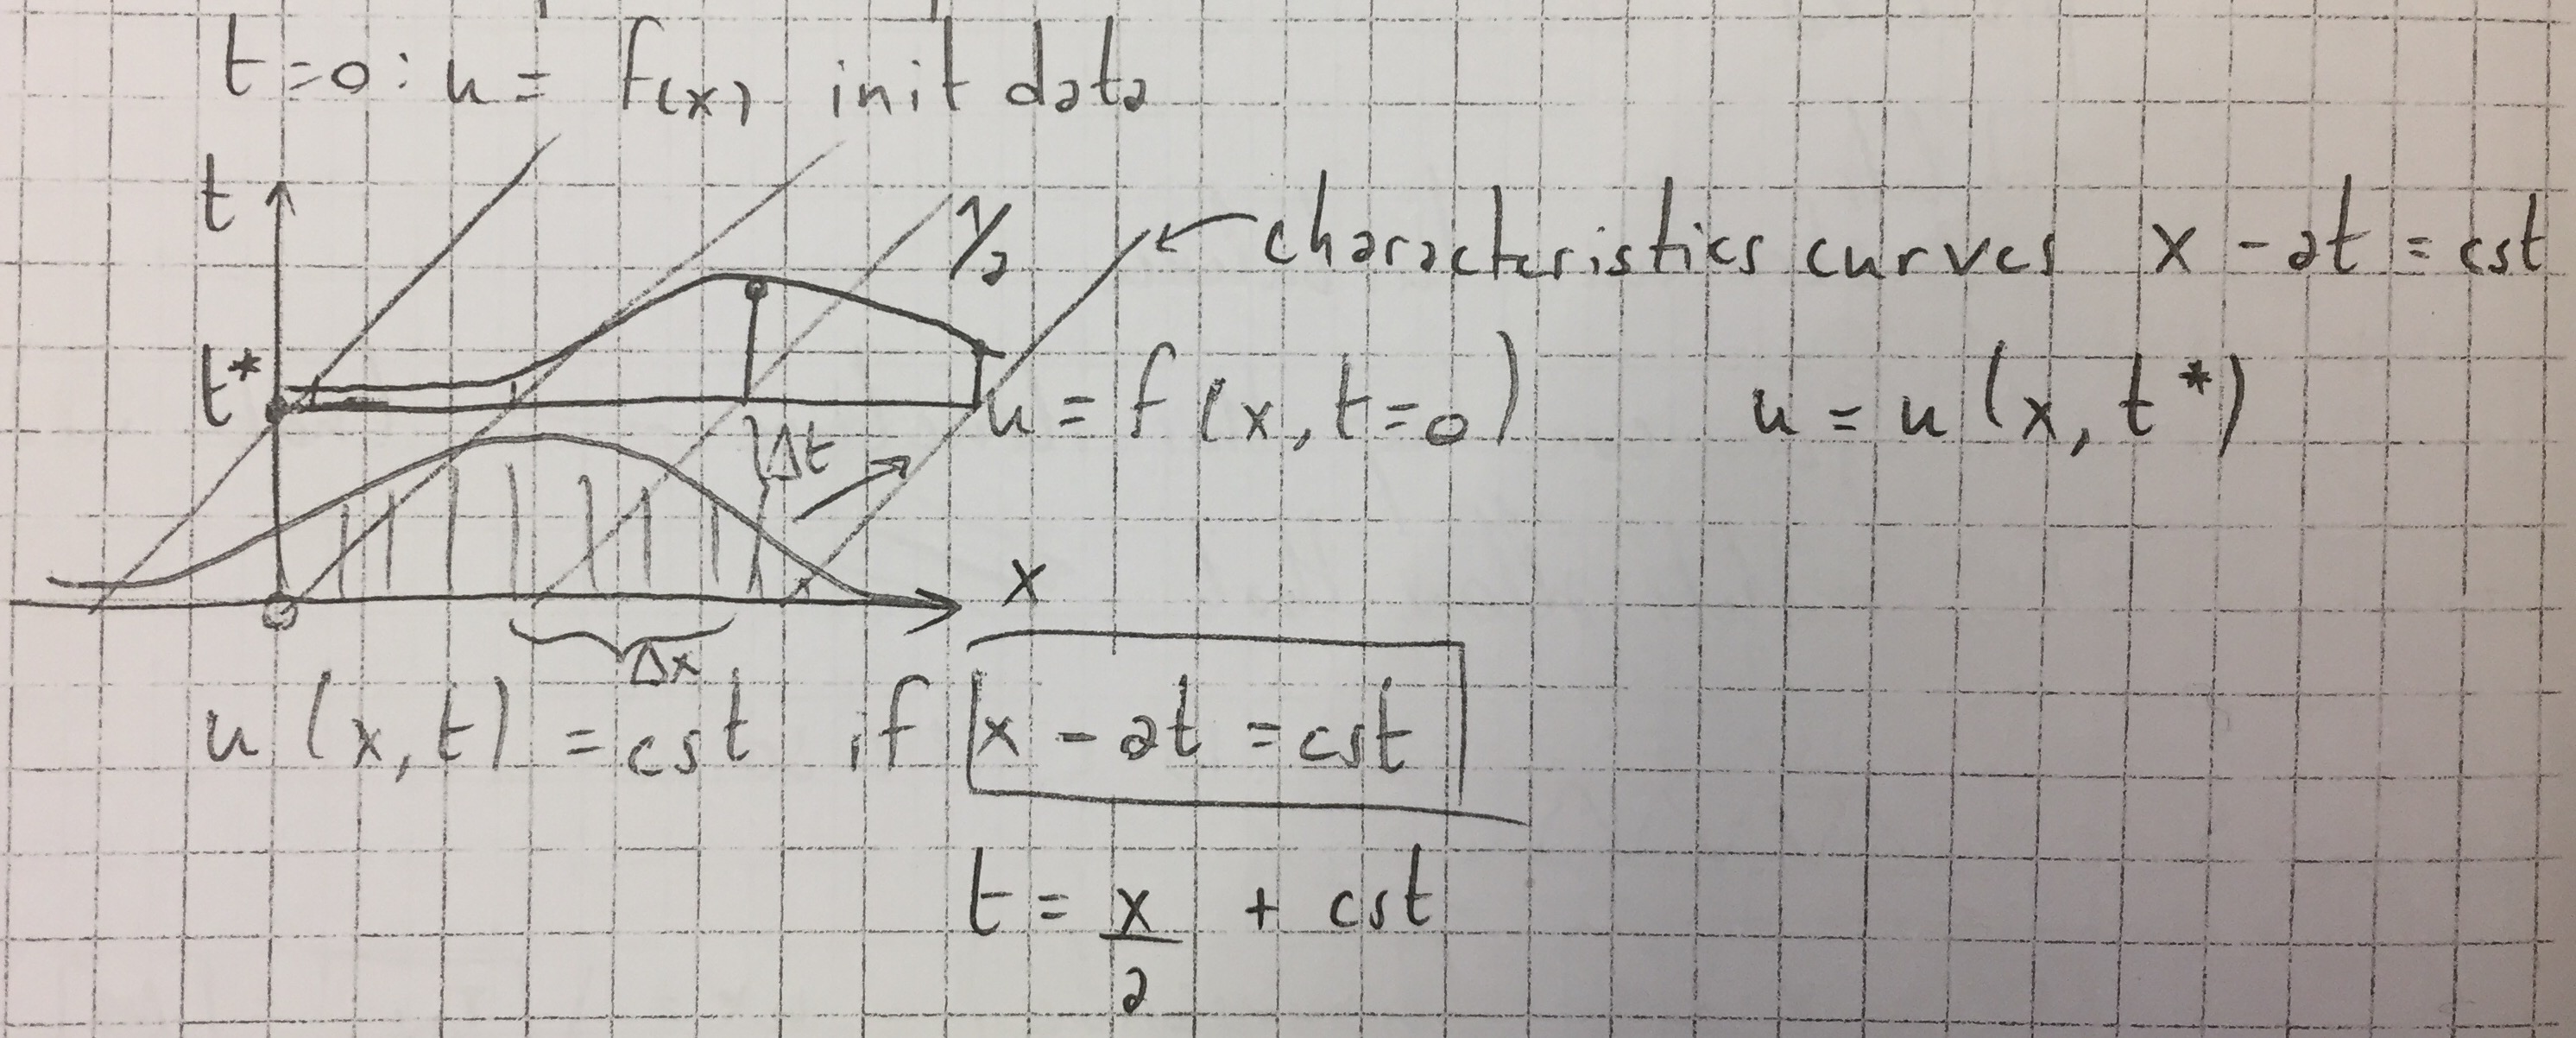 t=0: u = f(x) init data
t
1/a
characteristics curves x - at = cst
t*
u = f(x, t=0) u = u(x, t*)
Δt
x
Δx
u(x,t) = cst if x - at = cst
t = x/a + cst